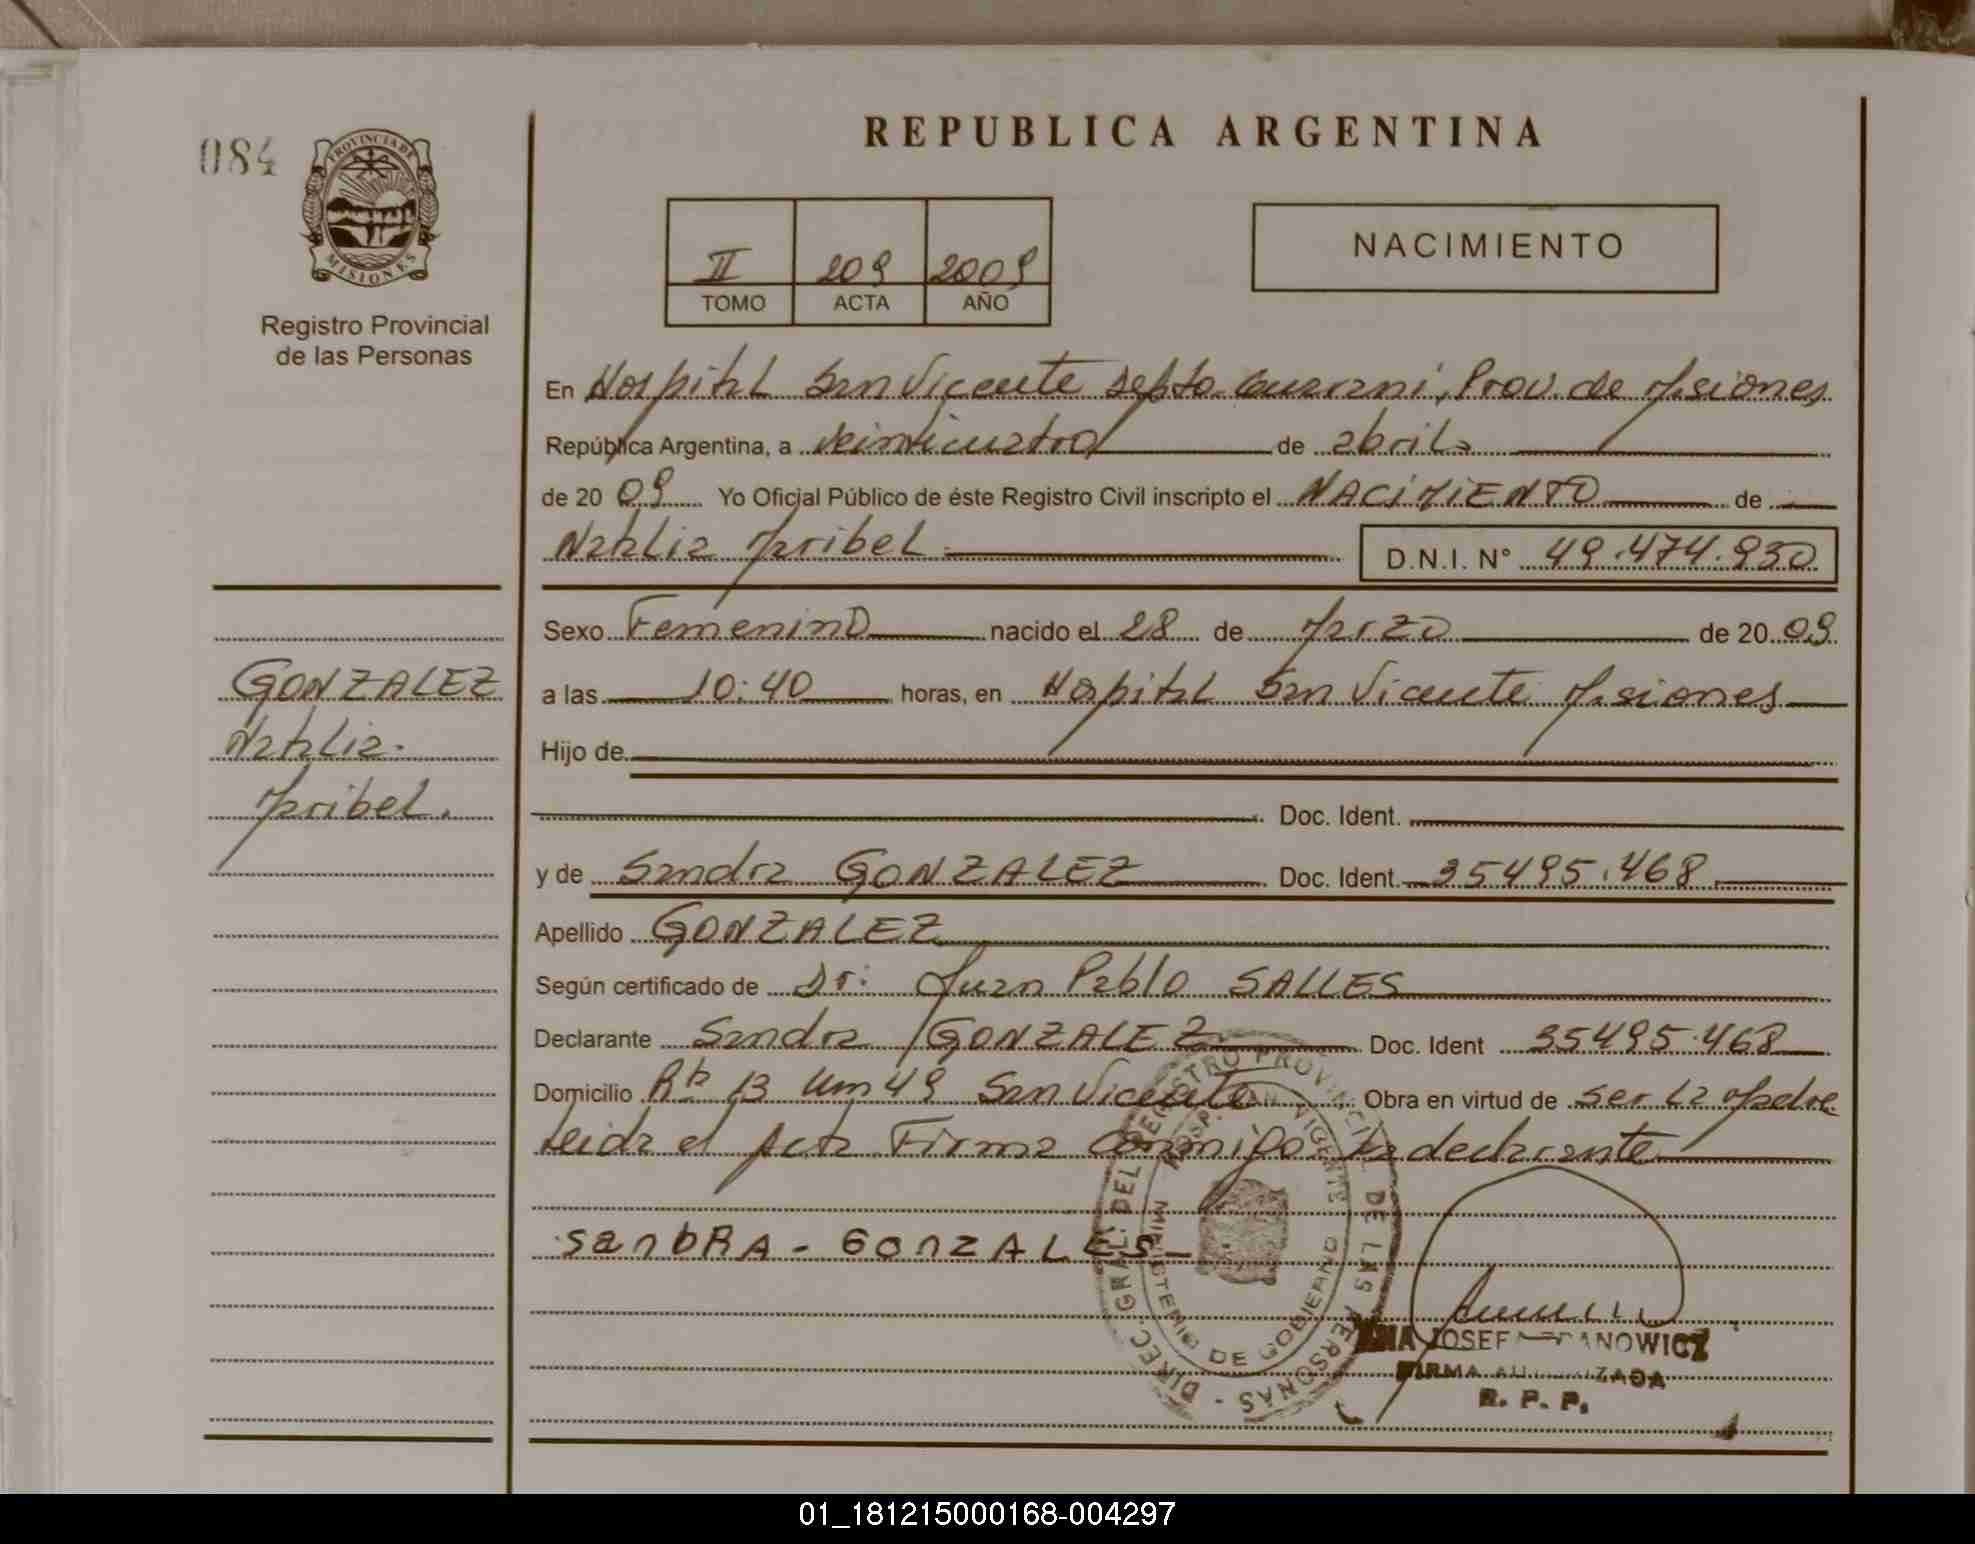 084
PROVINCIA DE
MISIONES
Registro Provincial
de las Personas
REPUBLICA ARGENTINA
II 209 2009
TOMO ACTA AÑO
NACIMIENTO
En Hospital San Vicente Depto. Guarani, Prov. de Misiones
República Argentina, a veinticuatro de abril
de 20 09 Yo Oficial Público de éste Registro Civil inscripto el NACIMIENTO de
Natalia Maribel D.N.I. N° 49.474.930
Sexo Femenino nacido el 28 de Marzo de 20 09
a las 10:40 horas, en Hospital San Vicente Misiones
Hijo de
Doc. Ident.
y de Sandra GONZALEZ Doc. Ident. 35495.468
Apellido GONZALEZ
Según certificado de Dr: Juan Pablo SALLES
Declarante Sandra GONZALEZ Doc. Ident 35495.468
Domicilio Rta 13 Km 49 San Vicente Obra en virtud de ser la Madre
Leida el Acta Firma Conmigo la declarante
SanbRA - GonzALES
GONZALEZ
Natalia
Maribel.
DIREC. GRAL. DEL REGISTRO PROVINCIAL DE LAS PERSONAS
MINISTERIO DE GOBIERNO
HOSP. SAN VICENTE
JOSEFA
FIRMA AUTORIZADA
R. P. P.
01_181215000168-004297